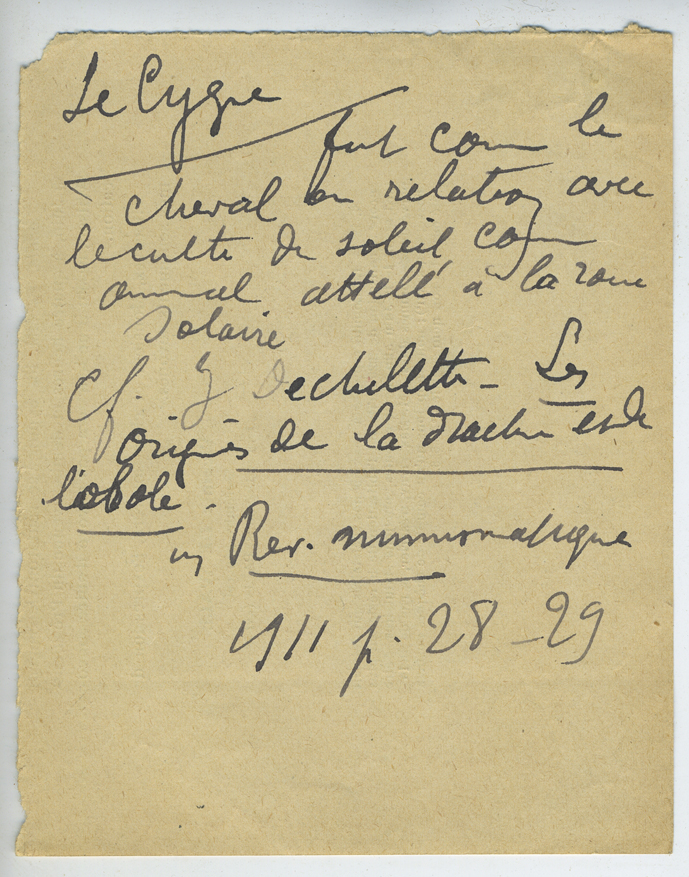 Le Cygne
fut comme le
cheval en relation avec
le culte du soleil, comme
animal attelé à la roue
solaire
Cf. J Dechelette - Les
origines de la drachme et de
l'obole.
in Rev. numismatique
1911 p. 28-29